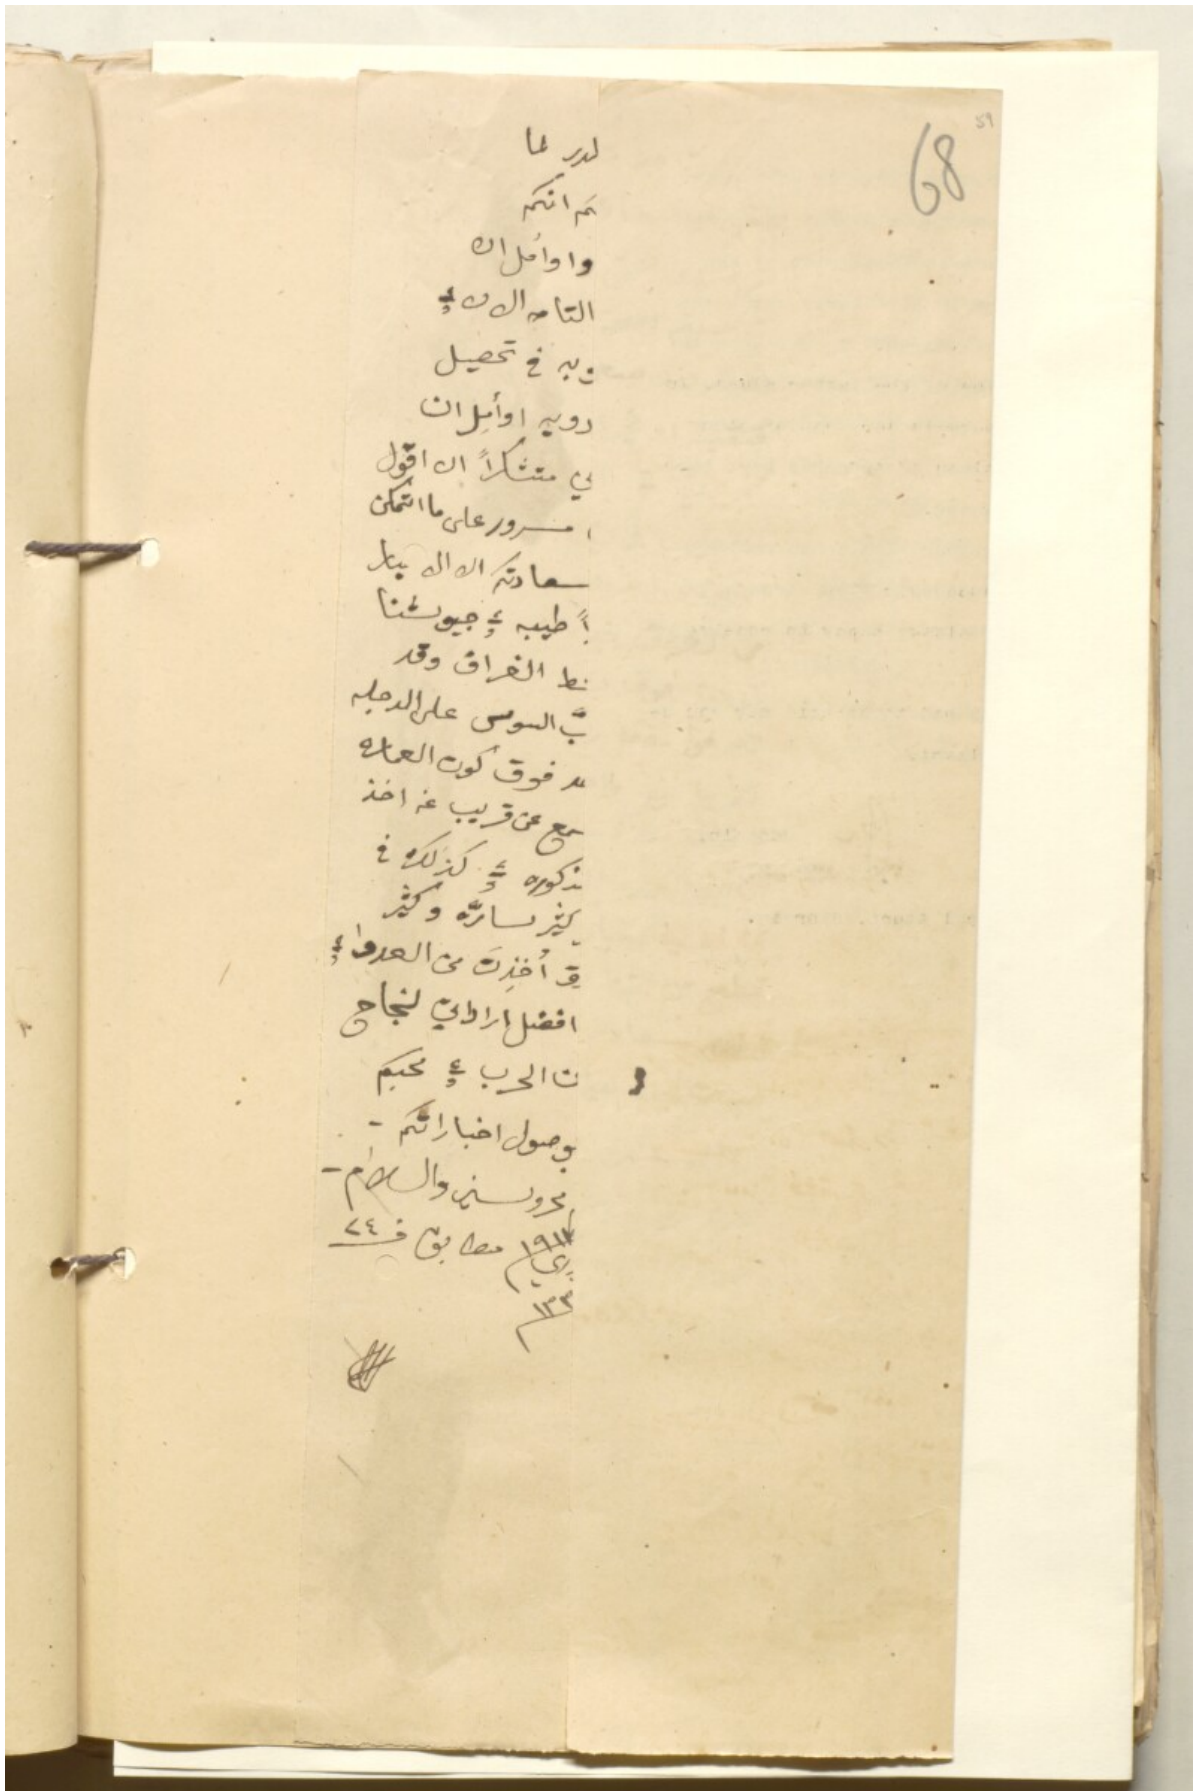 68
59
لدير لما
كم انكم
واوأمل ان
التامه الان
وبه في تحصيل
روبيه اوأمل ان
لي متشكراً ان اقول
مسرور على ما اتمكن
سعادتكم الان ال بيان
اً طيبه جيوشنا
نط الفراق وقد
على الدجله
فوق كون العماره
سمع عن قريب عن اخذ
ذكوره كذلك في
كثير سارّه وكثير
ق أُخذت من العدو
افضل اراداتي لنجاح
نا الحرب محبكم
بوصول اخباراتكم -
محروسين والسلام -
مطابق ٢٤